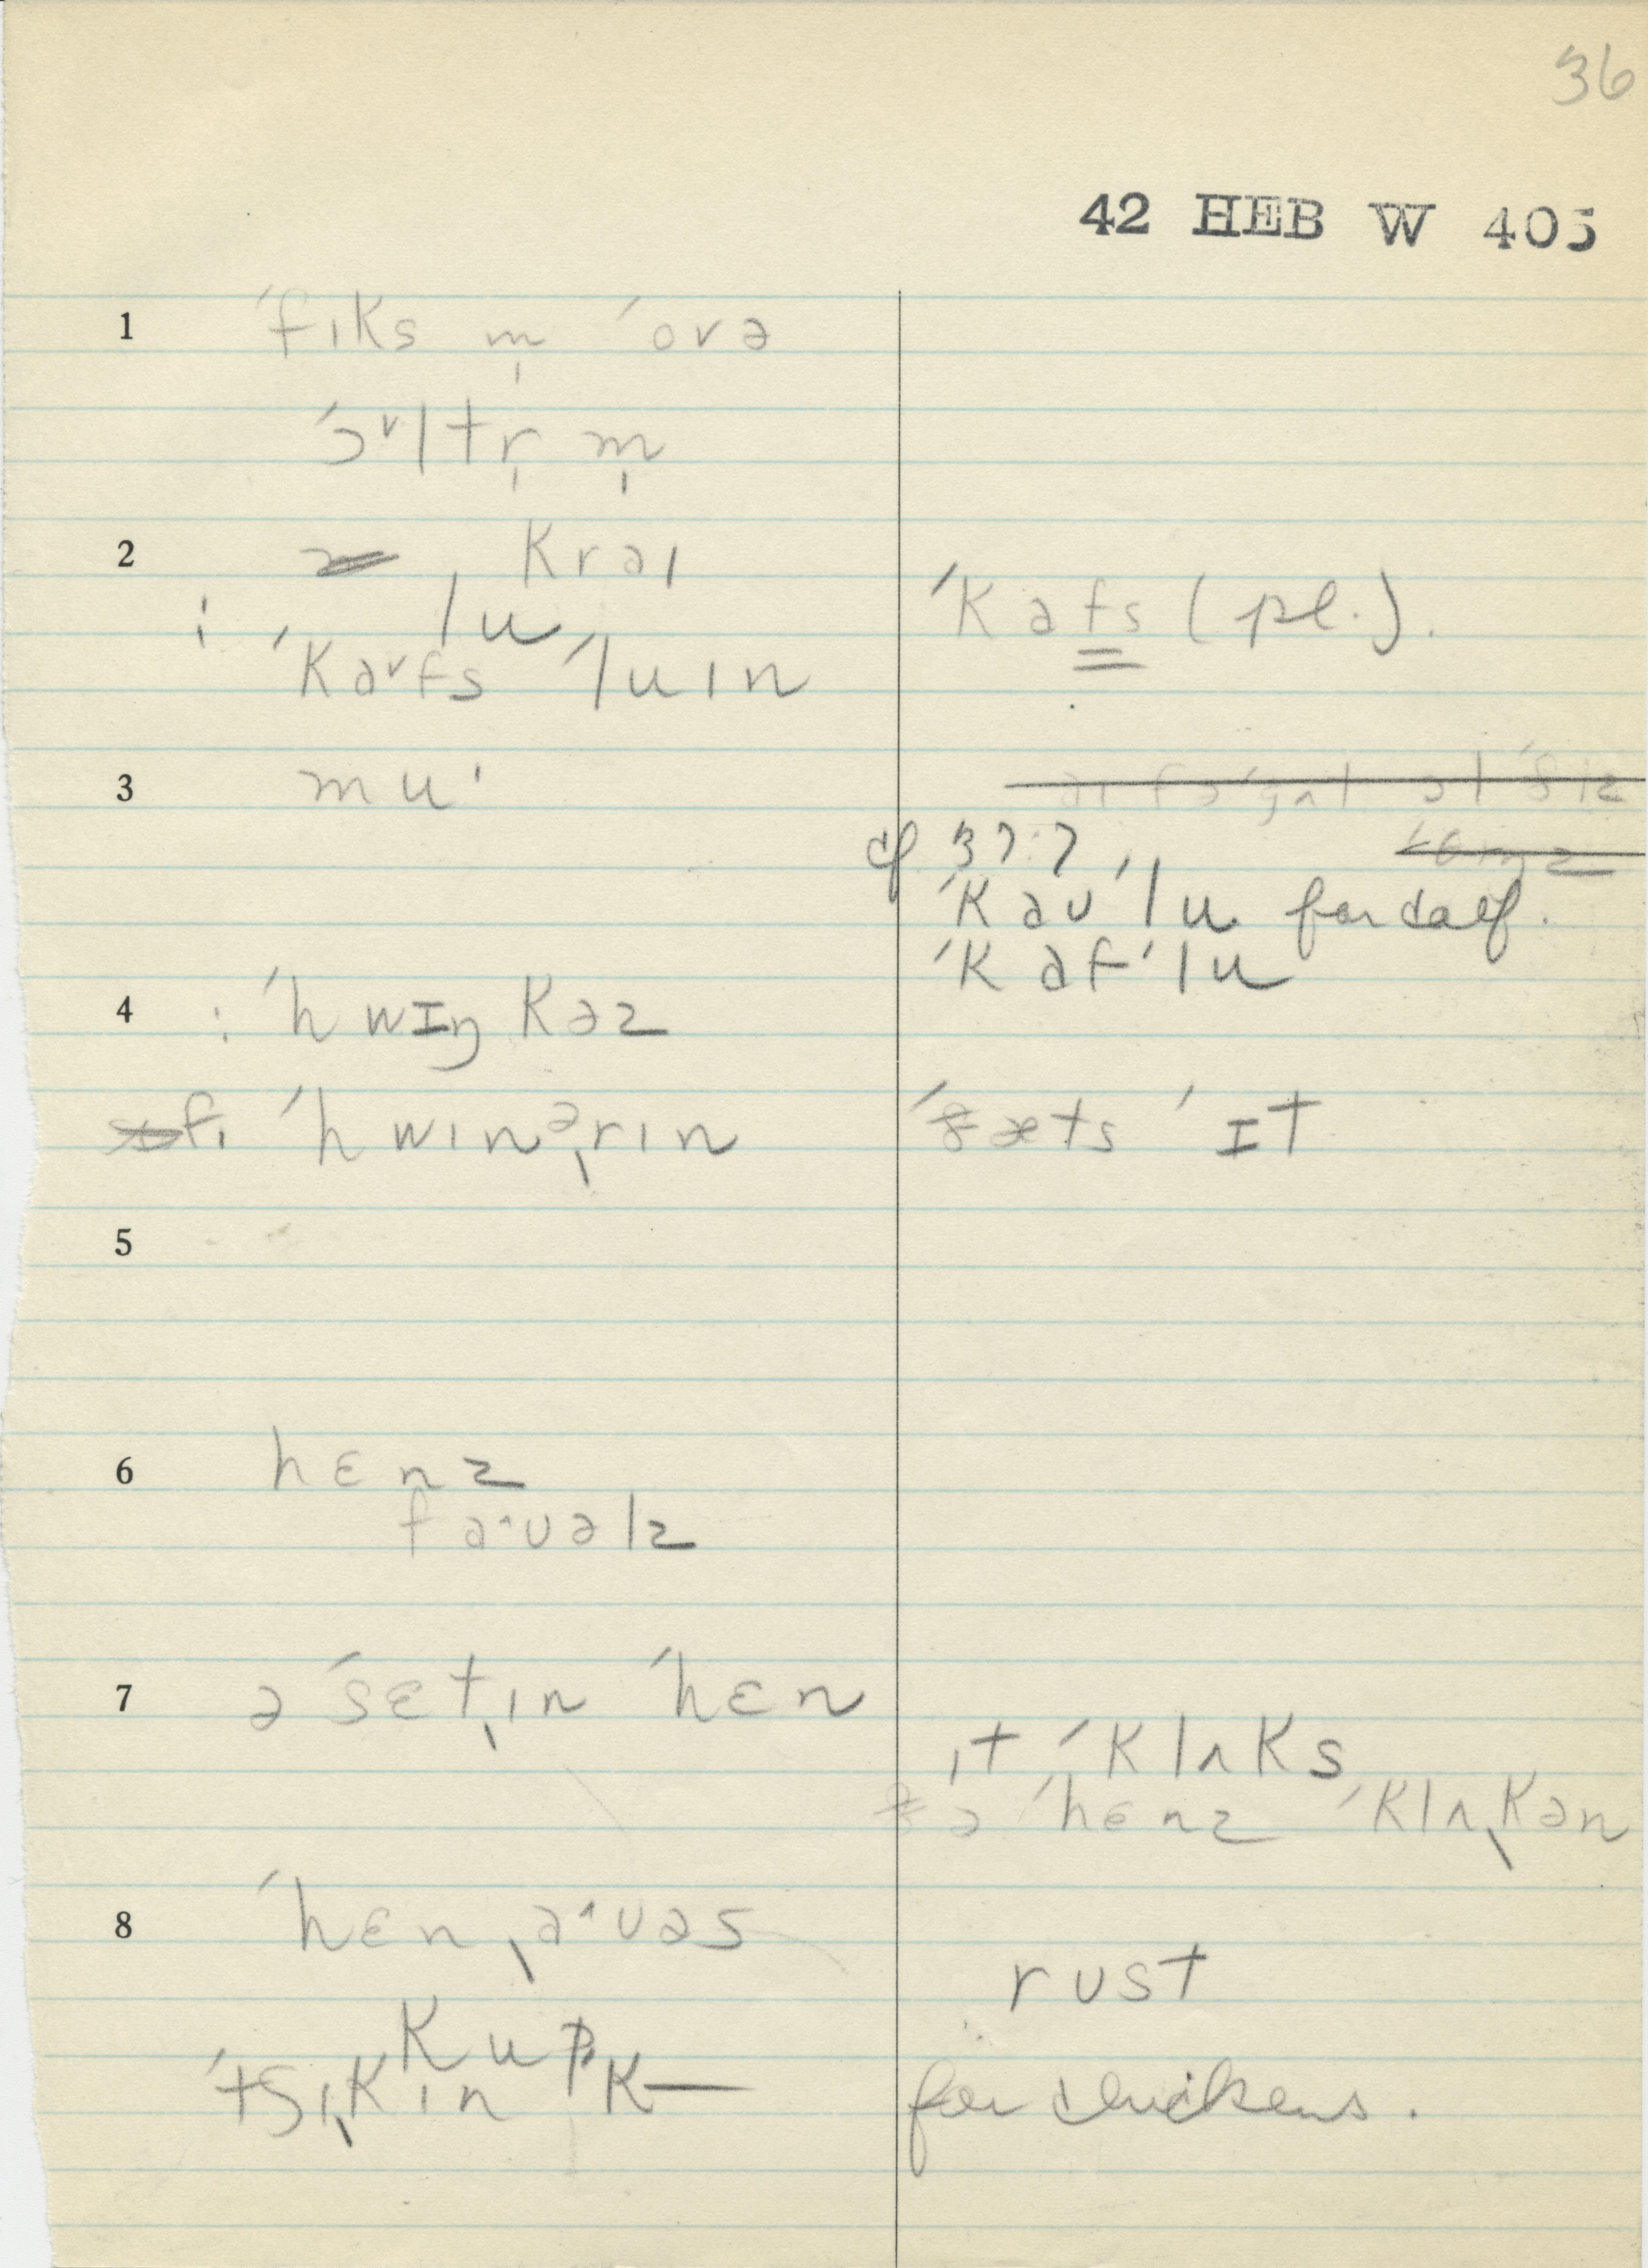 36
42 HEB W 405
1 ˈfɪks m̩ ˈovə
ˈɔ˅ltr̩ m̩
2 Krɑɪ
lu
: ˈKɑ˅fs ˈluɪn
ˈKɑfs (pl.).
3 muˑ
cf 37:7
ˈKɑʊˈlu for calf.
ˈKɑfˈlu
4 : ˈhwɪŋKəz
fɪ ˈhwɪnəˌrɪn
ˈðæts ˈɪt
5
6 hɛnz
fɑ˄ʊəlz
7 ə ˈsɛtˌɪn ˈhɛn
ɪt ˈKlʌKs
ðə ˈhɛnz ˈKlʌˌKən
8 ˈhɛnˌɑ˄ʊəs
rust
Kup
ˈtʃɪˌKɪn K—
for chickens.